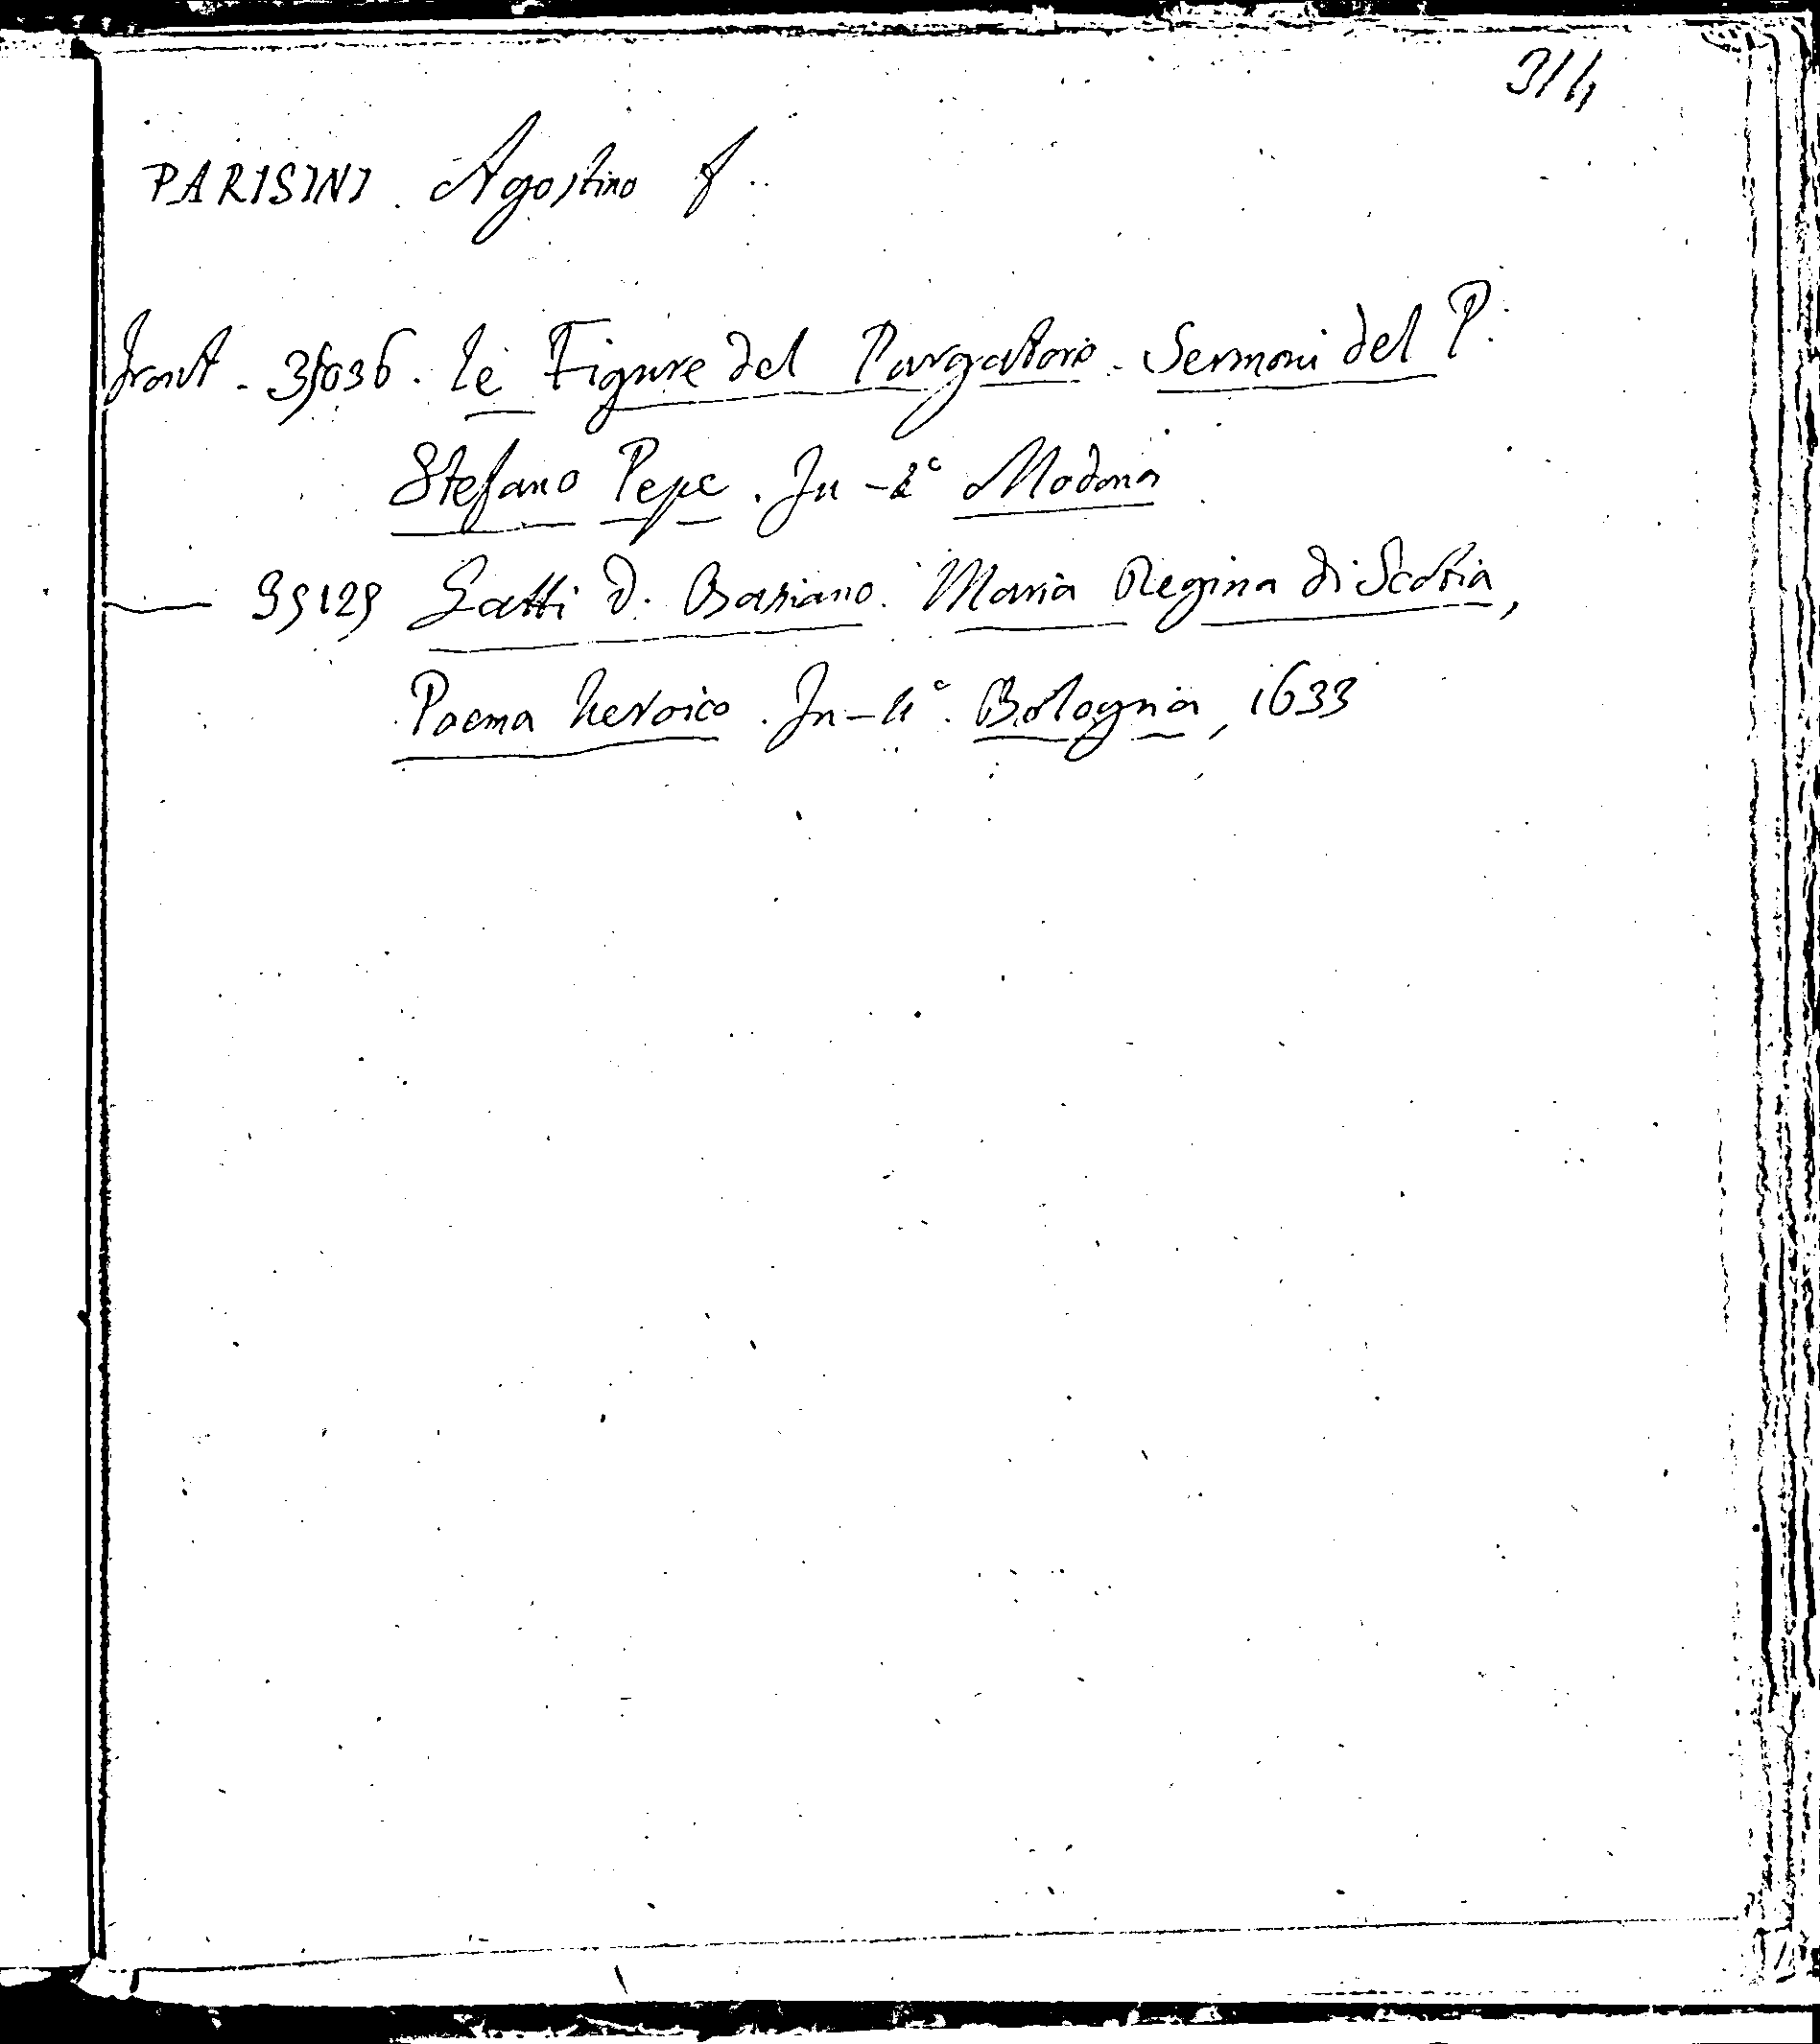 314
PARISINI. Agostino f
front. 35036. Le Figure del Purgatorio. Sermoni del P.
Stefano Pepe. In-4° Modona
— 35125 Gatti D. Basiano. Maria Regina di Scotia,
Poema heroico. In-4°. Bologna, 1633